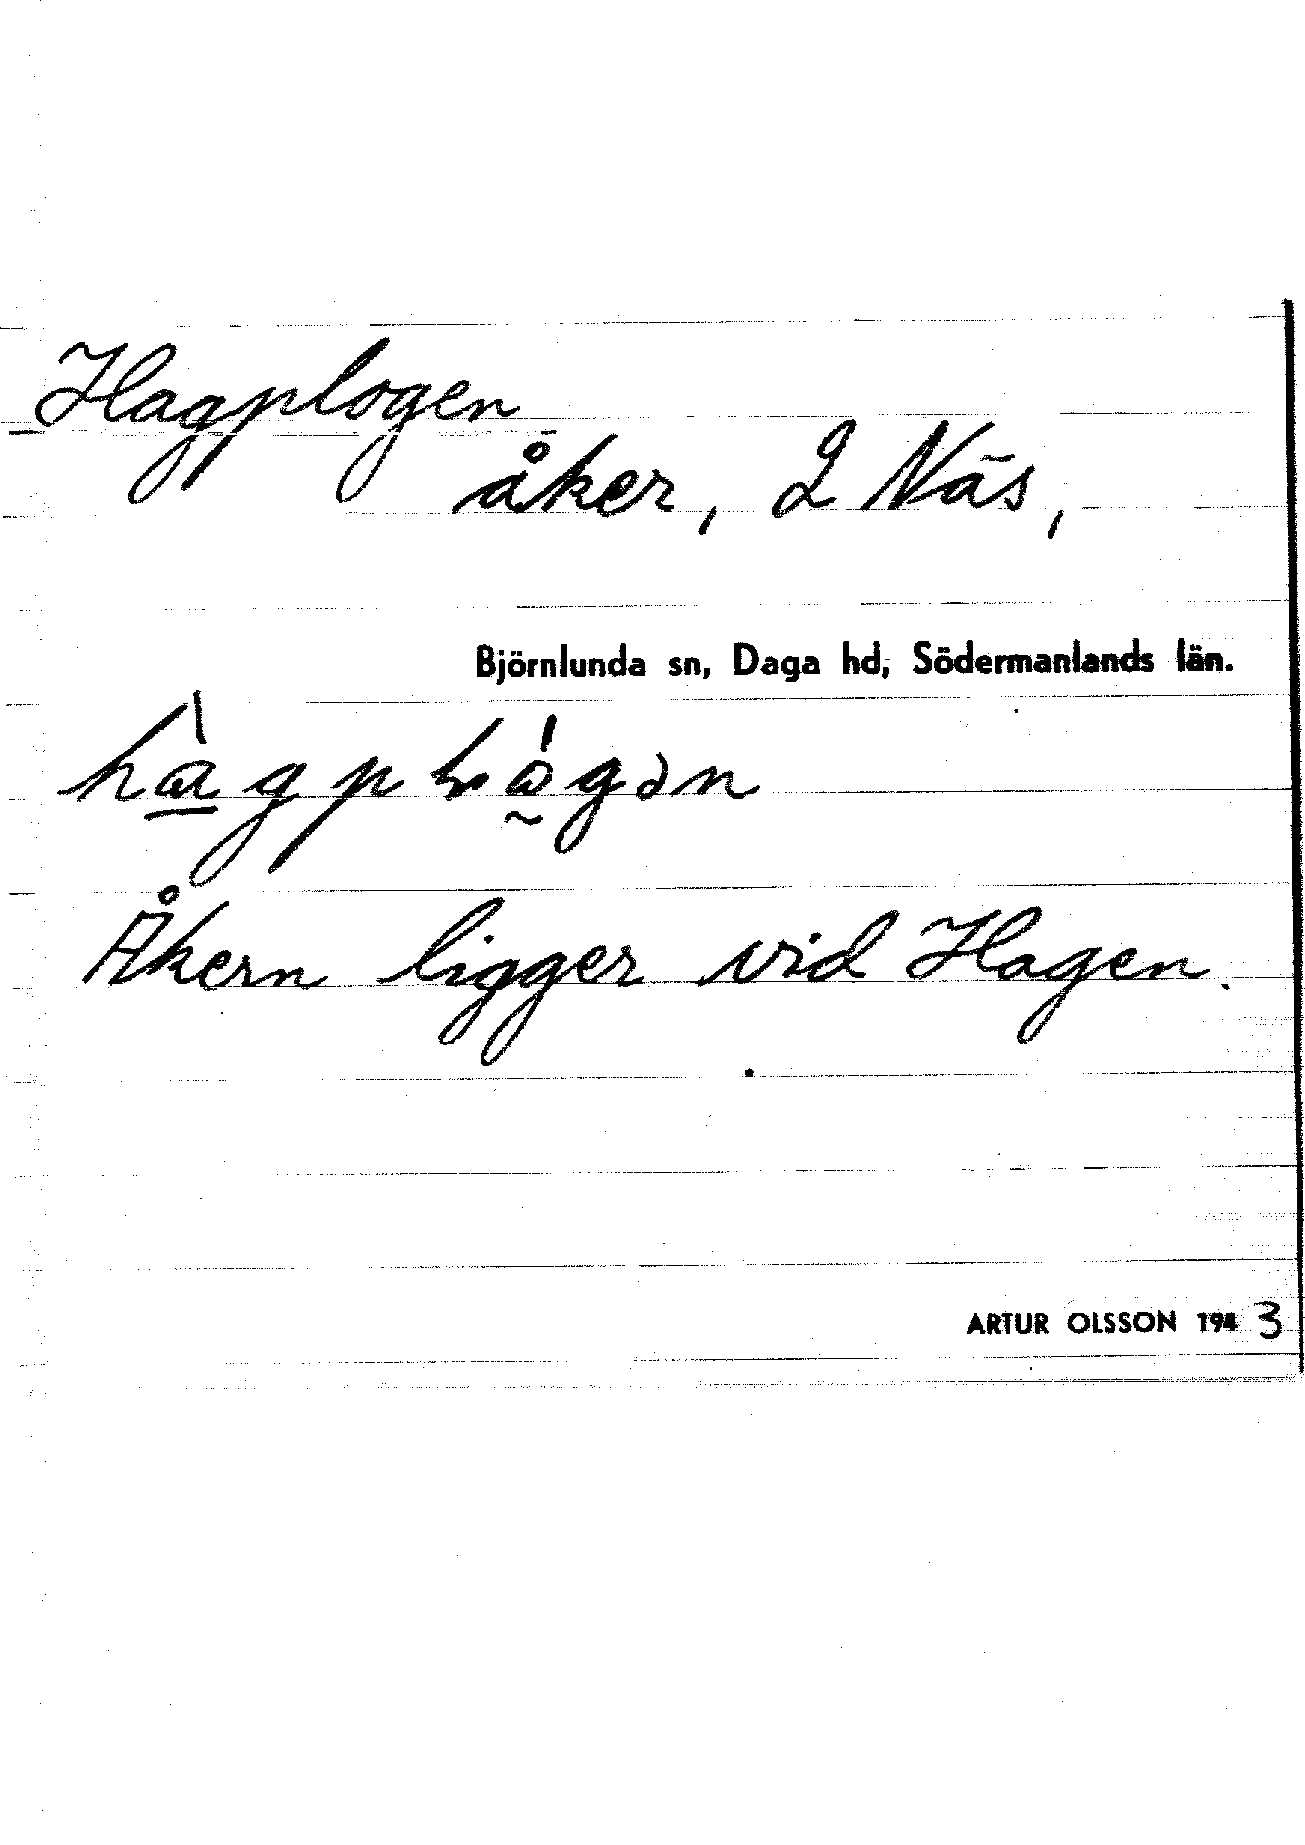 Hagplogen
åker, 2 Näs,
Björnlunda sn, Daga hd, Södermanlands län.
Åkern ligger vid Hagen.
ARTUR OLSSON 1943